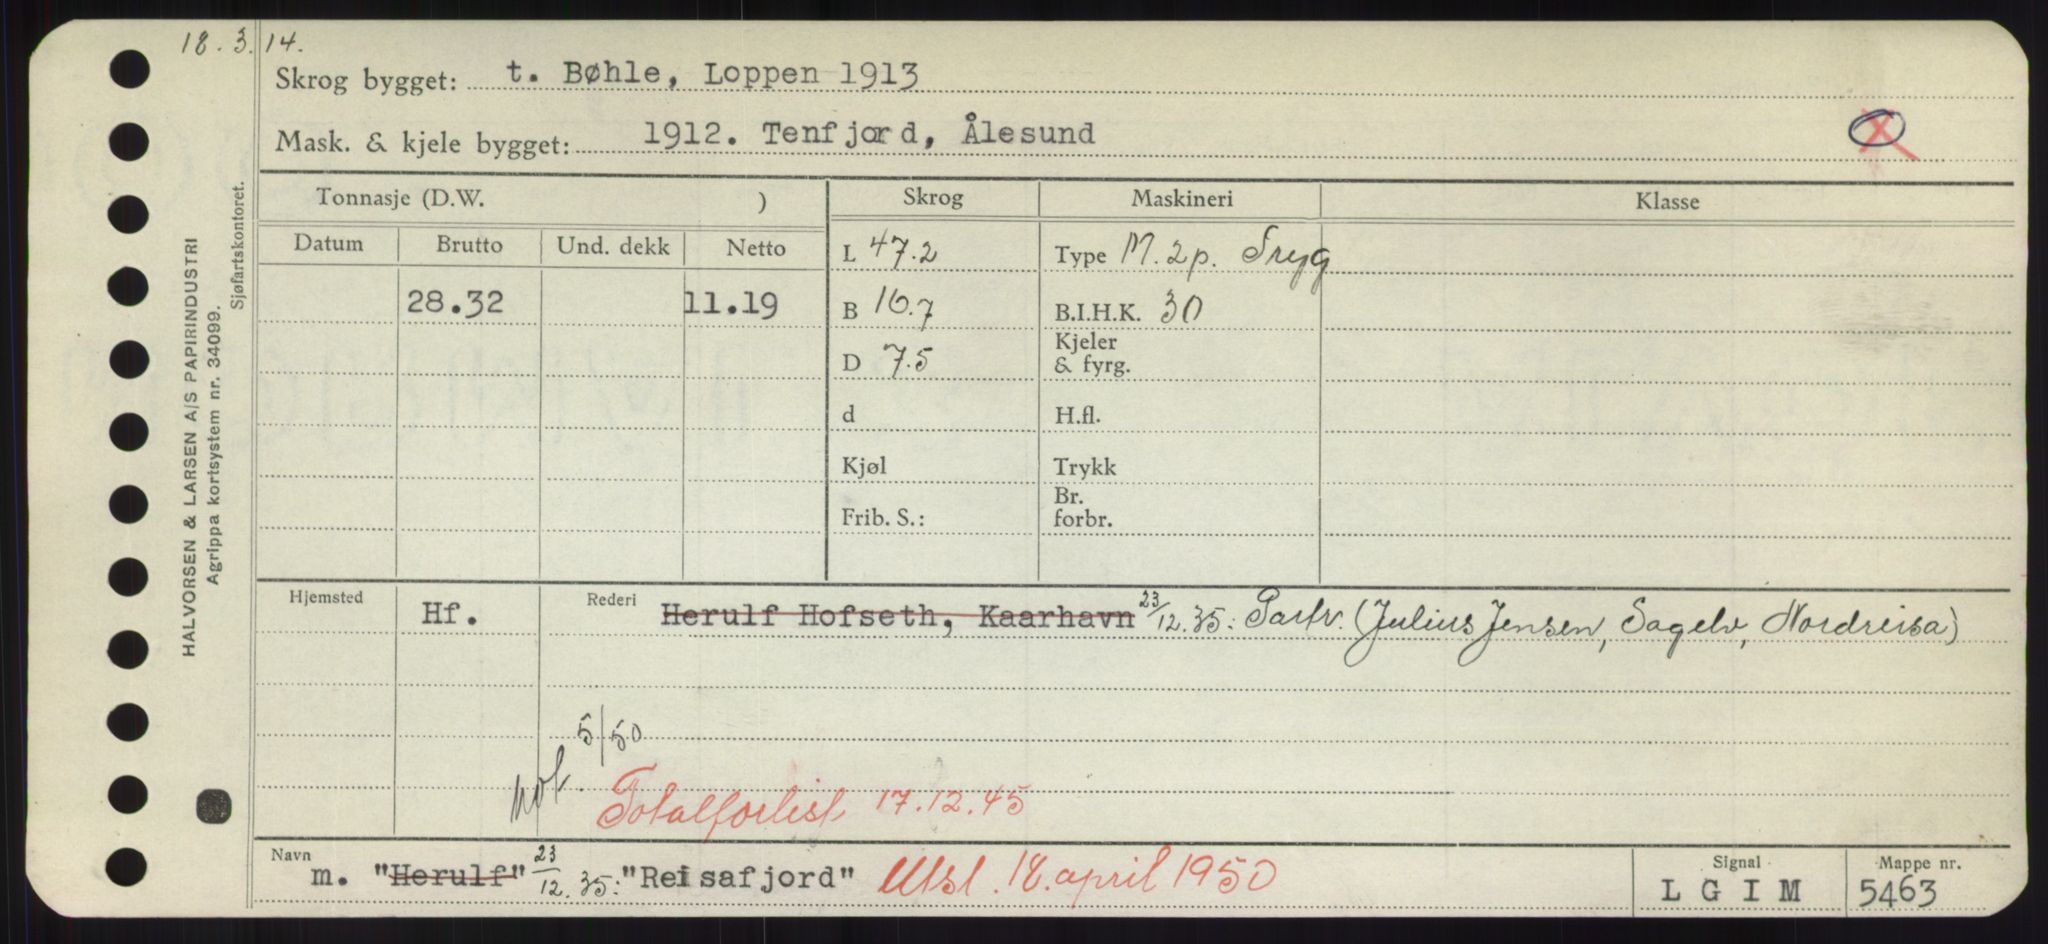 18.3.14.
Skrog bygget: t. Bøhle, Loppen 1913
Mask. & kjele bygget: 1912. Tenfjord, Ålesund
Tonnasje (D.W. ) Skrog Maskineri Klasse
Datum Brutto Und. dekk Netto L 47.2 Type M. 2p. Tryg
28.32 11.19 B 16.7 B.I.H.K. 30
D 7.5 Kjeler & fyrg.
d H.fl.
Kjøl Trykk
Frib. S.: Br. forbr.
Hjemsted Hf. Rederi Herulf Hofseth, Kaarhavn 23/12.35: Partr. (Julius Jensen, Sagelv, Nordreisa)
not. 5/50
Totalforlist 17.12.45
Navn m. "Herulf" 23/12.35: "Reisafjord" Utsl. 18. april 1950 Signal LGIM Mappe nr. 5463
HALVORSEN & LARSEN A/S PAPIRINDUSTRI
Agrippa kortsystem nr. 34099.
Sjøfartskontoret.